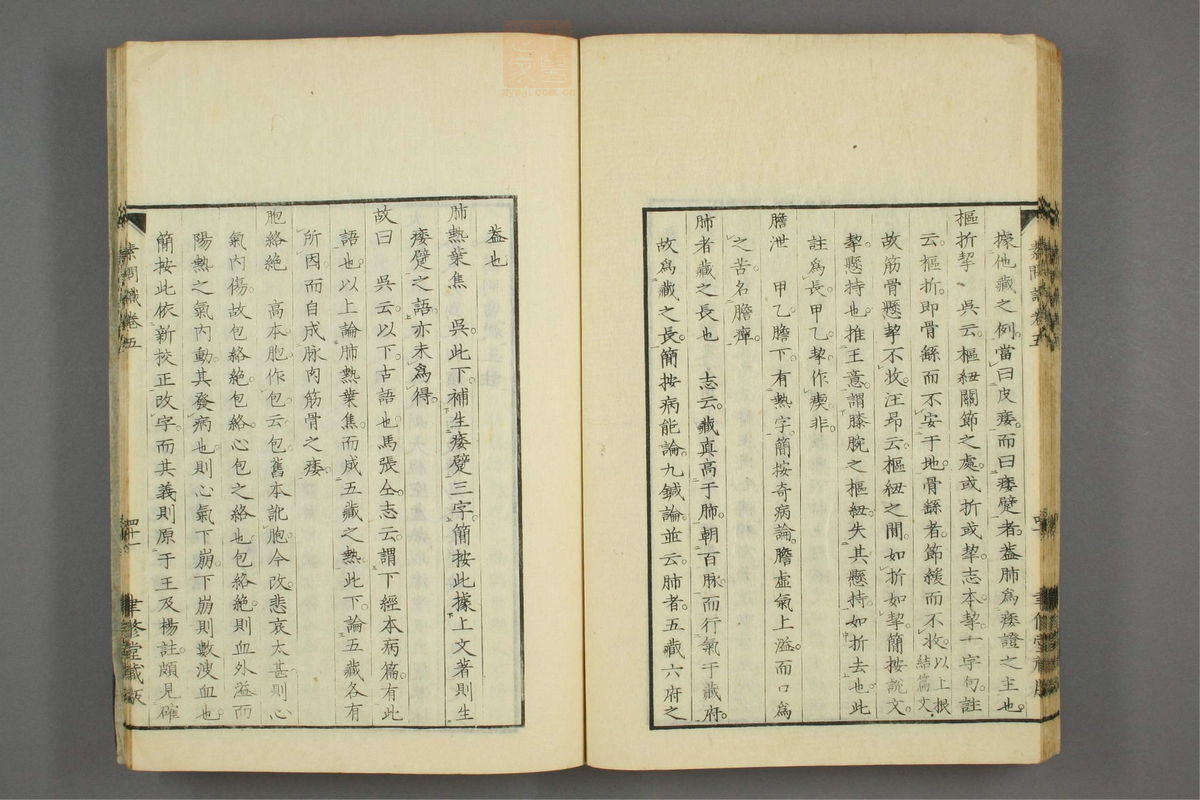 據他藏之例當曰皮痿而曰痿躄者蓋肺爲痿證之主也
樞折挈　吳云樞紐關節之處或折或挈志本挈一字句註
云樞折即骨繇而不安于地骨繇者節緩而不收以上根結篇文
故筋骨懸挈不收汪昂云樞紐之間如折如挈簡按說文
挈懸持也推王意謂膝腕之樞紐失其懸持如折去也此
註爲長甲乙挈作瘈非
膽泄　甲乙膽下有熱字簡按奇病論膽虛氣上溢而口爲
之苦名膽癉
肺者藏之長也　志云藏真高于肺朝百脉而行氣于藏府
故爲藏之長簡按病能論九鍼論並云肺者五藏六府之
素問識卷五
四十一
聿修堂藏版
蓋也
肺熱葉焦　吳此下補生痿躄三字簡按此據上文著則生
痿躄之語亦未爲得
故曰　吳云以下古語也馬張仝志云謂下經本病篇有此
語也以上論肺熱葉焦而成五藏之熱此下論五藏各有
所因而自成脉肉筋骨之痿
胞絡絶　高本胞作包云包舊本訛胞今改悲哀太甚則心
氣內傷故包絡絶包絡心包之絡也包絡絶則血外溢而
陽熱之氣內動其發病也則心氣下崩下崩則數溲血也
簡按此依新校正改字而其義則原于王及楊註頗見確